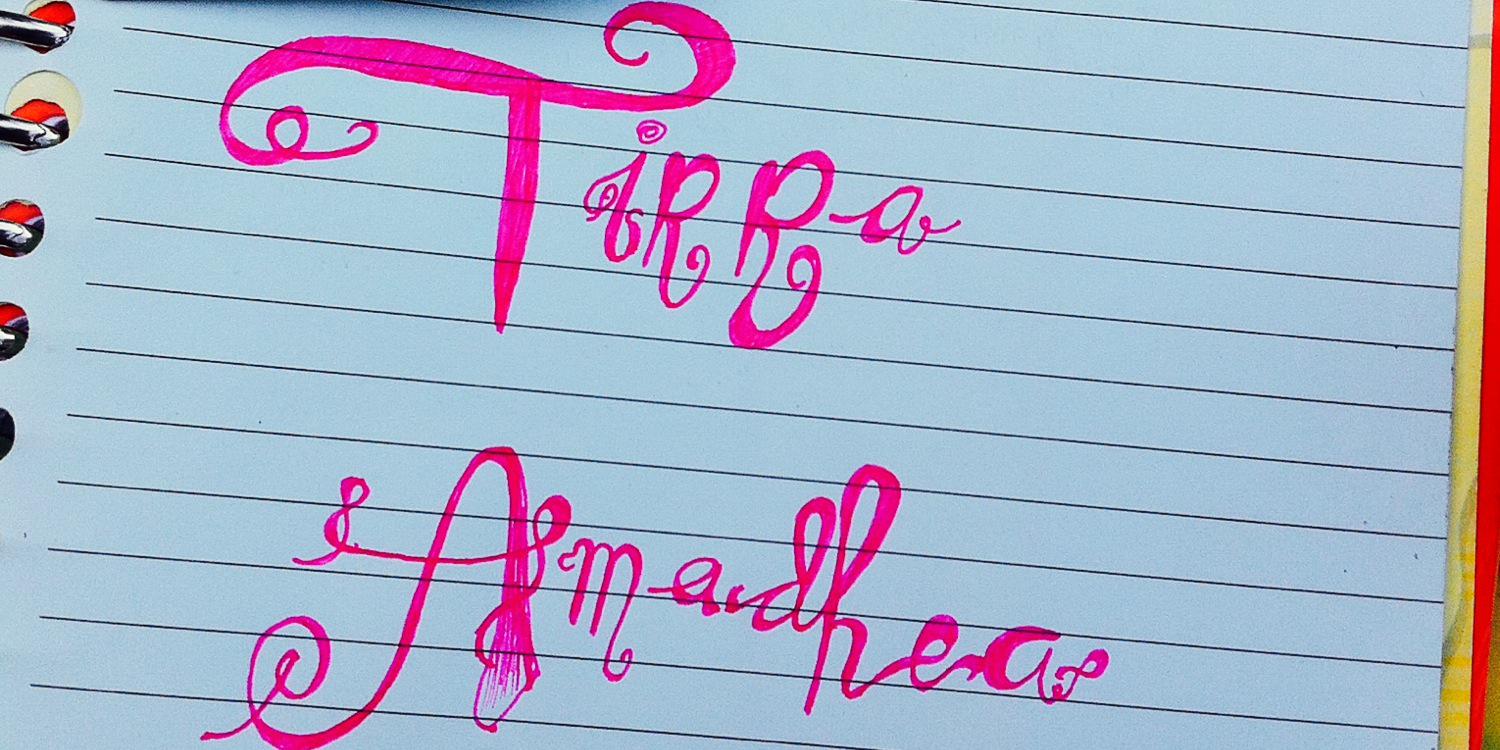 Tirra
Amadhea